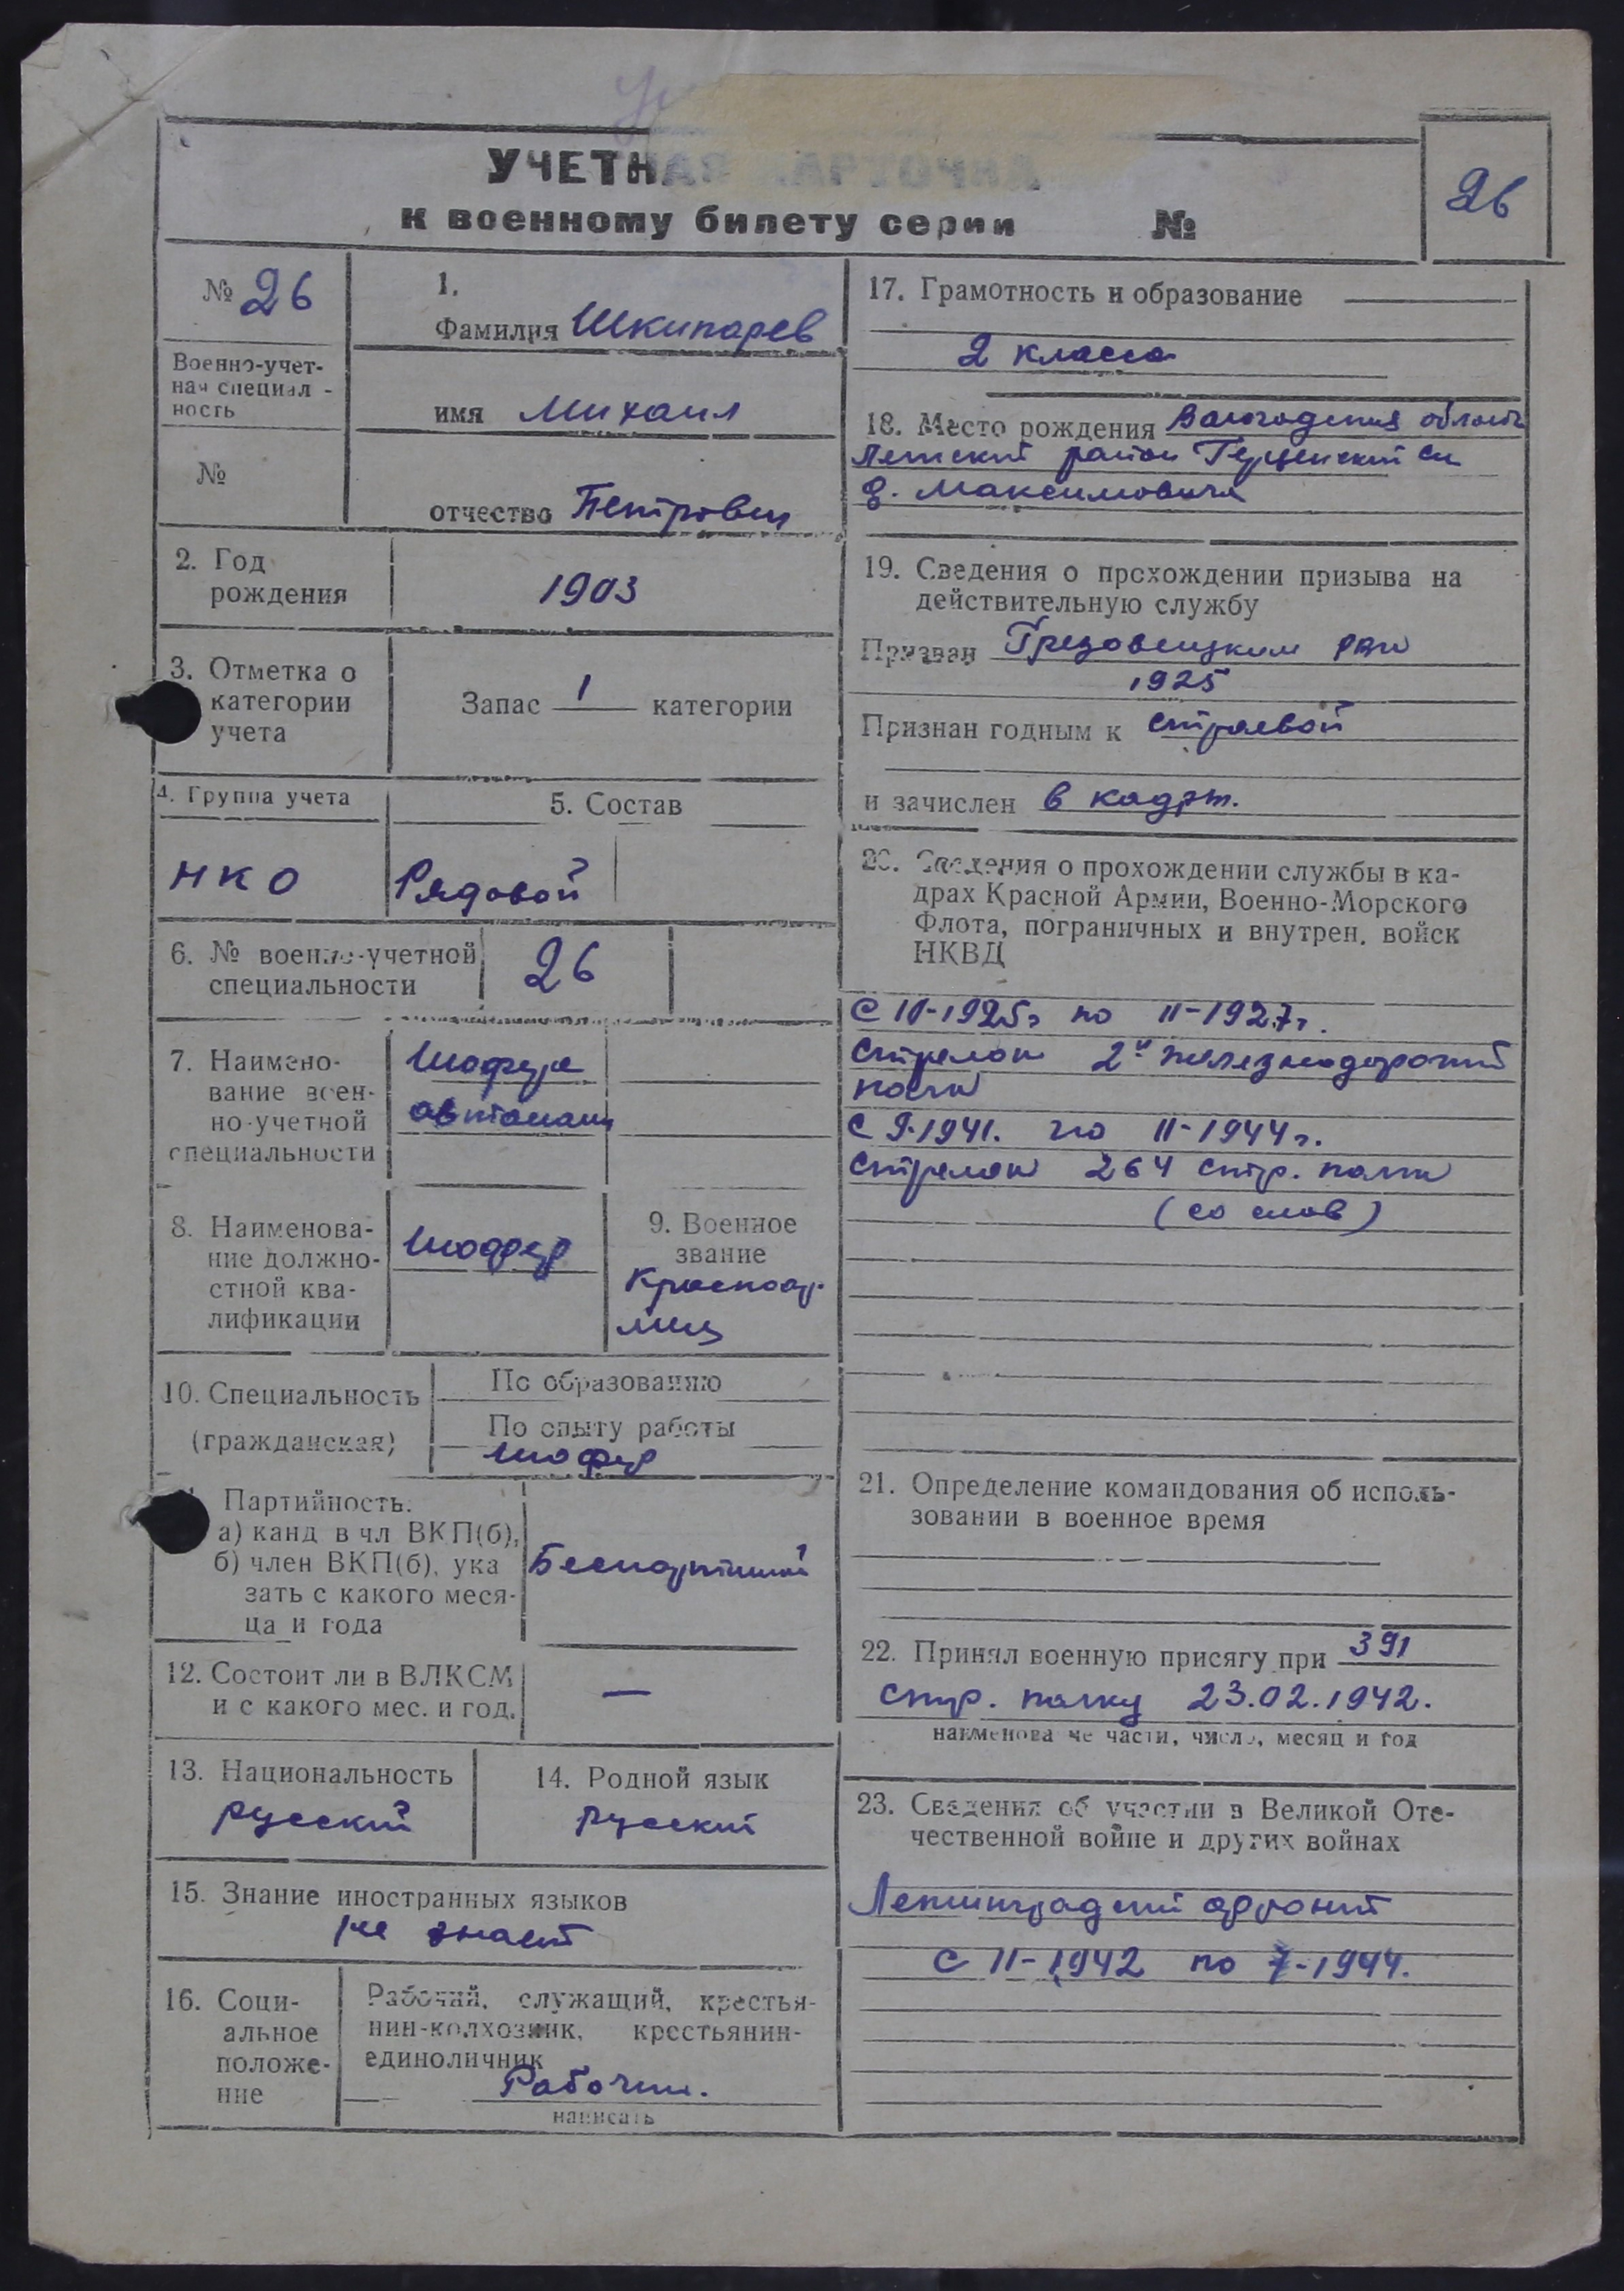 УЧЕТНАЯ КАРТОЧКА
к военному билету серии №
26
№ 26
Военно-учет-
ная специаль-
ность
№
1.
Фамилия Шкипарев
имя Михаил
отчество Петрович
2. Год
рождения
1903
3. Отметка о
категории
учета
Запас 1 категории
4. Группа учета
НКО
5. Состав
Рядовой
6. № военно-учетной
специальности
26
7. Наимено-
вание воен-
но-учетной
специальности
Шофера
автомаш
8. Наименова-
ние должно-
стной ква-
лификации
Шофер
9. Военное
звание
Красноар-
меец
10. Специальность
(гражданская)
По образованию
По опыту работы
шофер
Партийность.
а) канд в чл ВКП(б),
б) член ВКП(б), ука
зать с какого меся-
ца и года
Беспартийный
12. Состоит ли в ВЛКСМ
и с какого мес. и год.
—
13. Национальность
русский
14. Родной язык
русский
15. Знание иностранных языков
не знает
16. Соци-
альное
положе-
ние
Рабочий, служащий, крестья-
нин-колхозник, крестьянин-
единоличник
Рабочий.
написать
17. Грамотность и образование
2 класса
18. Место рождения Вологодская область
район
д. Максимовича
19. Сведения о прохождении призыва на
действительную службу
Призван Грязовецким РВК
1925
Признан годным к строевой
и зачислен в кадры.
20. Сведения о прохождении службы в ка-
драх Красной Армии, Военно-Морского
Флота, пограничных и внутрен. войск
НКВД
1925г по 11-1927г.
Стрелок 2й железнодорожный
полк
С 9-1941. по 11-1944г.
Стрелок 264 стр. полк
(со слов)
21. Определение командования об исполь-
зовании в военное время
22. Принял военную присягу при 391
стр. полку 23.02.1942.
наименова ие части, число, месяц и год
23. Сведения об участии в Великой Оте-
чественной войне и других войнах
Ленинградский фронт
с 11-1942 по 7-1944.